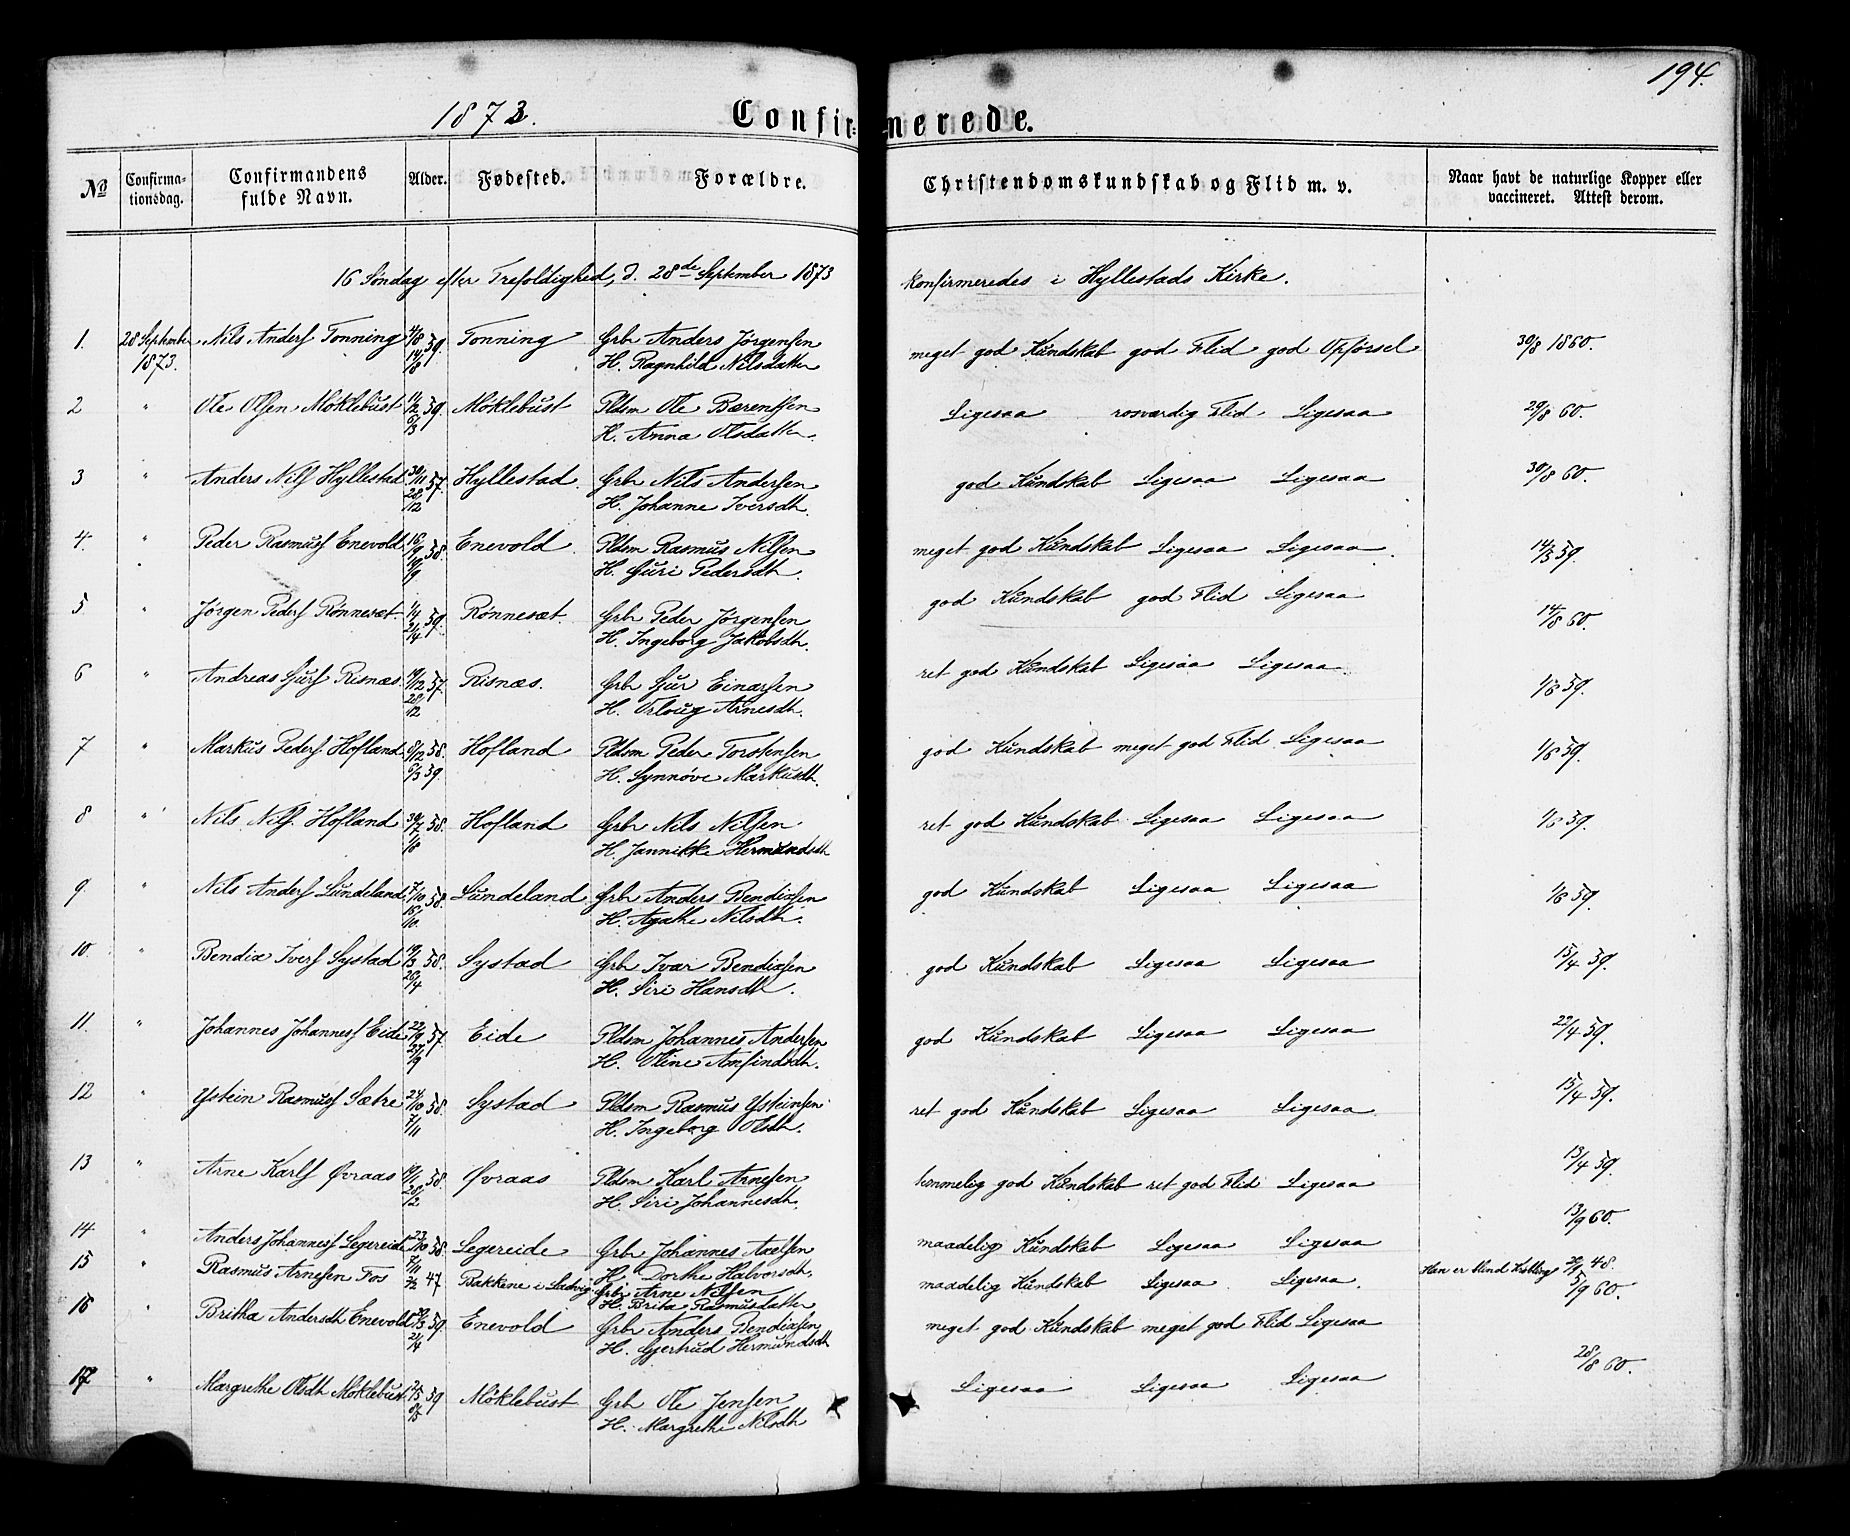 194.
1873. Confirmerede.
No Confirmationsdag. Confirmandens fulde Navn. Alder. Fødested. Forældre. Christendomskundskab og Flid m. v. Naar havt de naturlige Kopper eller vaccineret. Attest derom.
16 Søndag efter Trefoldighed, d. 28de September 1873 konfirmeredes i Hyllestads Kirke.
1. 28 September 1873. Nils Anders Tonning 4/8 59. Tonning Grbr Anders Jørgensen meget god Kundskab god Flid god Opførsel 30/8 1860.
14/8 H. Ragnhild Nilsdatter
2 " Ole Olsen Møklebust 11/2 59. Møklebust Pldsm Ole Bærentsen Ligesaa rosværdig Flid Ligesaa 29/8 60.
6/3 H. Anna Olsdatter.
3 " Anders Nils Hyllestad 30/11 57. Hyllestad. Grbr Nils Andersen god Kundskab Ligesaa Ligesaa 30/8 60.
28/12 H. Johanne Iversdtr.
4. " Peder Rasmus Enevold 16/9 58. Enevold. Pldsm Rasmus Nilsen meget god Kundskab Ligesaa Ligesaa. 14/5 59.
19/9 H. Guri Pedersdtr.
5 " Jørgen Peders Rønneset. 1/4 59. Rønneset. Grbr Peder Jørgensen god Kundskab god Flid Ligesaa 14/8 60.
21/4 H. Ingeborg Jakobsdtr.
6 " Andreas Gurs Risnæs. 19/12 57. Risnæs. Grbr Gur Einarsen ret god Kundskab Ligesaa Ligesaa. 1/6 59.
28/12 H. Orloug Arnesdtr.
7 " Markus Peders Hofland 8/12 58. Hofland Pldsm Peder Torstensen god Kundskab meget god Flid Ligesaa 1/6 59.
6/3 59. H. Synnøve Markusdtr.
8 " Nils Nils. Hofland 30/7 58. Hofland Grbr Nils Nilsen ret god Kundskab Ligesaa Ligesaa 1/6 59.
1/8 H. Jannikke Hermundsdtr
9. " Nils Anders Lundeland 7/10 58. Lundeland Grbr Anders Bendixsen god Kundskab Ligesaa Ligesaa 1/6 59.
16/10. H. Agathe Nilsdtr.
10. " Bendix Ivers Systad 19/3 58. Systad Grbr Ivar Bendixsen god Kundskab Ligesaa Ligesaa 15/4 59.
26/4 H. Siri Hansdtr.
11. " Johannes Johanness Eide 22/9 57. Eide Pldsm Johannes Andersen god Kundskab Ligesaa Ligesaa 22/4 59.
27/9 H. Oline Amfindsdtr.
12 " Ystein Rasmuss Sætre 24/10 58. Systad Pldsm Rasmus Ysteinsen. ret god Kundskab Ligesaa Ligesaa 15/4 59.
7/11 H. Ingeborg Olsdtr.
13 " Arne Karls Øvraas 19/1 58. Øvraas Pldsm Karl Arnesen temmelig god Kundskab ret god Flid Ligesaa 13/4 59.
28/2 H. Siri Johannesdtr.
14 " Anders Johanness Legereide 23/10 58. Legereide Grbr Johannes Axelsen maadelig Kundskab Ligesaa Ligesaa 13/9 60.
7/11 H. Dorthe Halvorsdtr.
15 " Rasmus Arnesen Fos 2/2 47 Bakkene i Ladvig Grbr Arne Nilsen maadelig Kundskab Ligesaa Ligesaa. Han er blind 48.
H. Brita Rasmusdatter
16 " Britha Andersdtr Enevold 59. Enevold Grbr Anders Bendixsen meget god Kundskab meget god Flid Ligesaa 5/9 60.
21/4 H. Gjertrud Hermundsdtr
17 " Margrethe Olsdtr Møklebust 2/5 59 Møklebust Grbr Ole Jensen Ligesaa Ligesaa Ligesaa 28/8 60.
8/5 H. Margrethe Nilsdtr